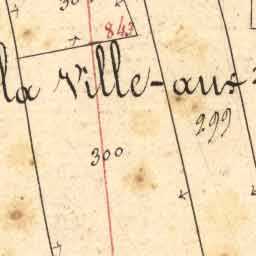 843
la Ville-aux
299
300